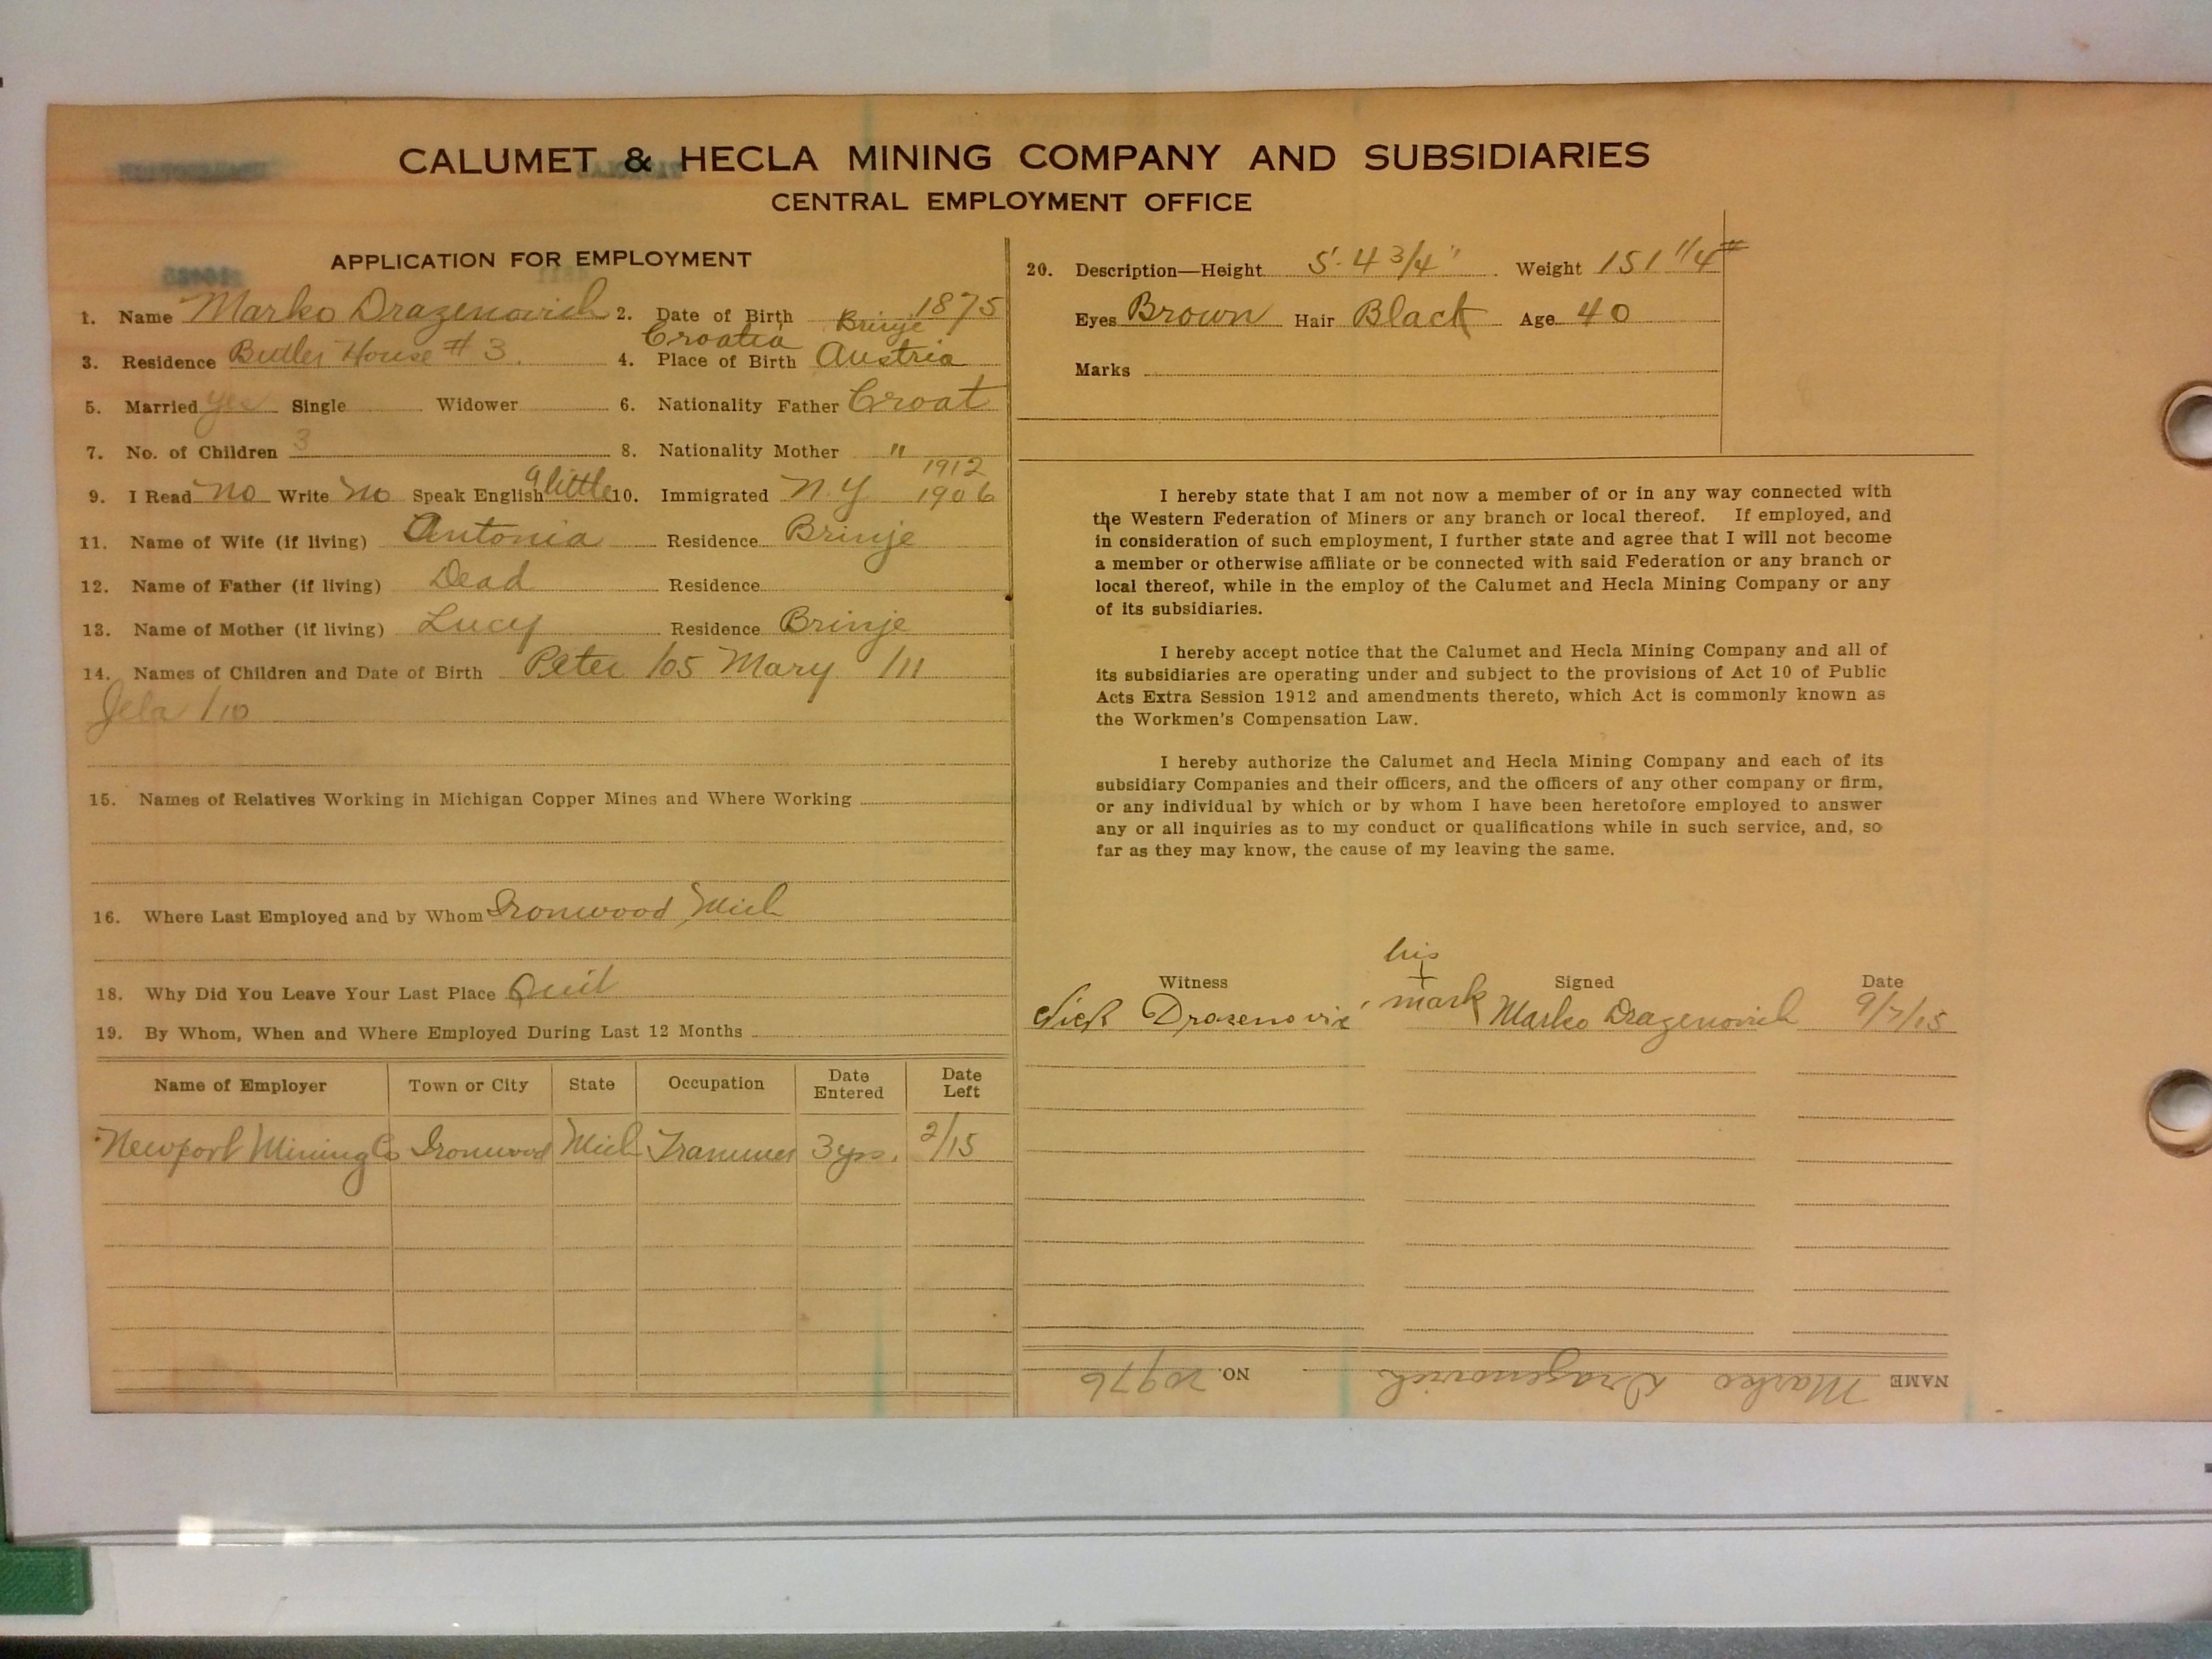 CALUMET & HECLA MINING COMPANY AND SUBSIDIARIES
CENTRAL EMPLOYMENT OFFICE
APPLICATION FOR EMPLOYMENT
1. Name Marko Drazenovich 2. Date of Birth 1875
3. Residence Butler House # 3. 4. Place of Birth Croatia Brinje Austria
5. Married yes Single Widower 6. Nationality Father Croat
7. No. of Children 3 8. Nationality Mother "
9. I Read no Write no Speak English a little 10. Immigrated N.Y. 1912 1906
11. Name of Wife (if living) Antonia Residence Brinje
12. Name of Father (if living) Dead Residence
13. Name of Mother (if living) Lucy Residence Brinje
14. Names of Children and Date of Birth Peter /05 Mary /11
Jela /10
15. Names of Relatives Working in Michigan Copper Mines and Where Working
16. Where Last Employed and by Whom Ironwood, Mich
18. Why Did You Leave Your Last Place Quit
19. By Whom, When and Where Employed During Last 12 Months
Name of Employer Town or City State Occupation Date Entered Date Left
Newport Mining Co Ironwood Mich Trammer 3 yrs. 2/15
20. Description—Height 5'. 4 3/4" Weight 151 1/4 #
Eyes Brown Hair Black Age 40
Marks
I hereby state that I am not now a member of or in any way connected with
the Western Federation of Miners or any branch or local thereof. If employed, and
in consideration of such employment, I further state and agree that I will not become
a member or otherwise affiliate or be connected with said Federation or any branch or
local thereof, while in the employ of the Calumet and Hecla Mining Company or any
of its subsidiaries.
I hereby accept notice that the Calumet and Hecla Mining Company and all of
its subsidiaries are operating under and subject to the provisions of Act 10 of Public
Acts Extra Session 1912 and amendments thereto, which Act is commonly known as
the Workmen's Compensation Law.
I hereby authorize the Calumet and Hecla Mining Company and each of its
subsidiary Companies and their officers, and the officers of any other company or firm,
or any individual by which or by whom I have been heretofore employed to answer
any or all inquiries as to my conduct or qualifications while in such service, and, so
far as they may know, the cause of my leaving the same.
Witness his + mark Signed Date
Drazenovic Marko Drazenovich 9/7/15
NAME Marko Drazenovich NO. 20976